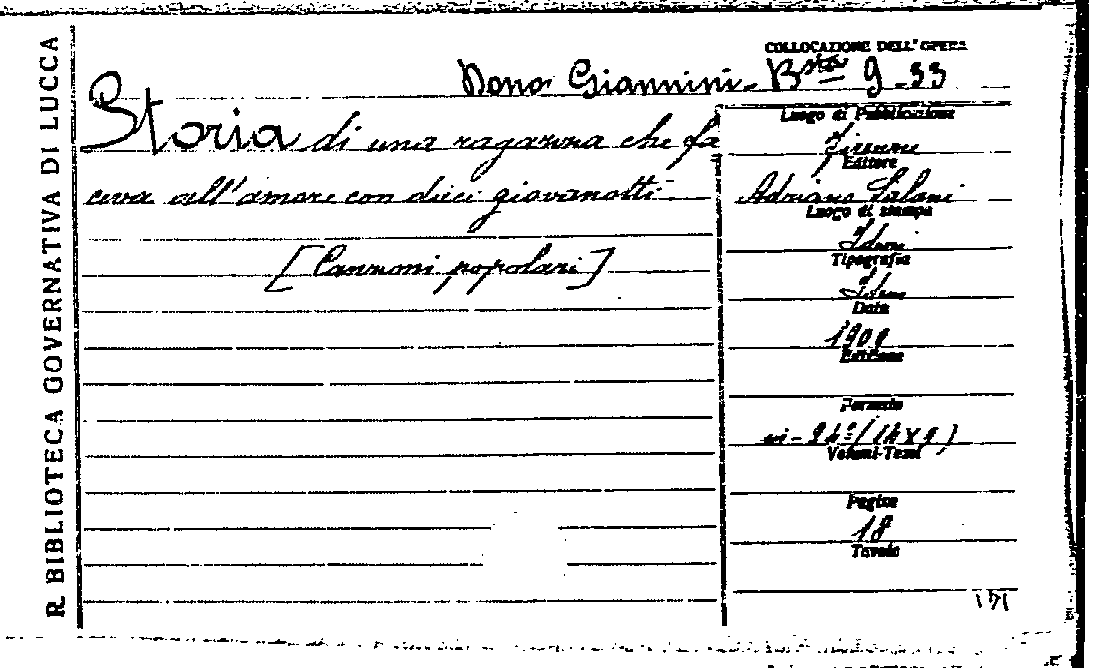 R. BIBLIOTECA GOVERNATIVA DI LUCCA
COLLOCAZIONE DELL'OPERA
Dono Giannini - Bsta 9 - 33
Storia di una ragazza che fa
ceva all'amore con dieci giovanotti -
[Canzoni popolari]
Luogo di Pubblicazione
Firenze
Editore
Adriano Salani
Luogo di stampa
Idem
Tipografia
Idem
Data
1909
Edizione
Formato
in-24º (14x9)
Volumi-Tomi
Pagine
18
Tavole